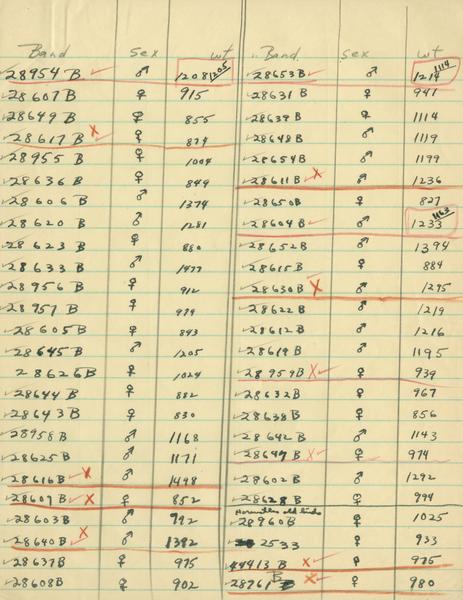 Band sex wt
28954 B ♂ 1208 1205
28607 B ♀ 915
28649 B ♀ 855
28617 B X ♀ 874
28955 B ♀ 1004
28636 B ♀ 849
28606 B ♂ 1374
28620 B ♂ 1281
28623 B ♀ 880
28633 B ♂ 1477
28956 B ♀ 912
28957 B ♀ 979
28605 B ♀ 893
28645 B ♂ 1205
28626 B ♀ 1024
28644 B ♀ 882
28643 B ♀ 830
28958 B ♂ 1168
28625 B ♂ 1171
28616 B X ♂ 1498
28607 B X ♀ 852
28603 B ♂ 792
28640 B X ♂ 1382
28637 B ♀ 975
28608 B ♀ 902
Band sex wt
28653 B ♂ 1214 1114
28631 B ♀ 941
28639 B ♀ 1114
28648 B ♂ 1119
28654 B ♂ 1199
28611 B X ♂ 1236
28650 B ♀ 827
28604 B ♂ 1233 1163
28652 B ♂ 1394
28615 B ♀ 884
28630 B X ♂ 1275
28622 B ♂ 1219
28612 B ♂ 1216
28619 B ♂ 1195
28959 B X ♀ 939
28632 B ♀ 967
28638 B ♀ 856
28642 B ♂ 1143
28647 B X ♀ 974
28602 B ♂ 1292
28628 B ♀ 994
old birds
28960 B ♀ 1025
2533 ♀ 933
44913 B X ♀ 975
28761 B X ♀ 980